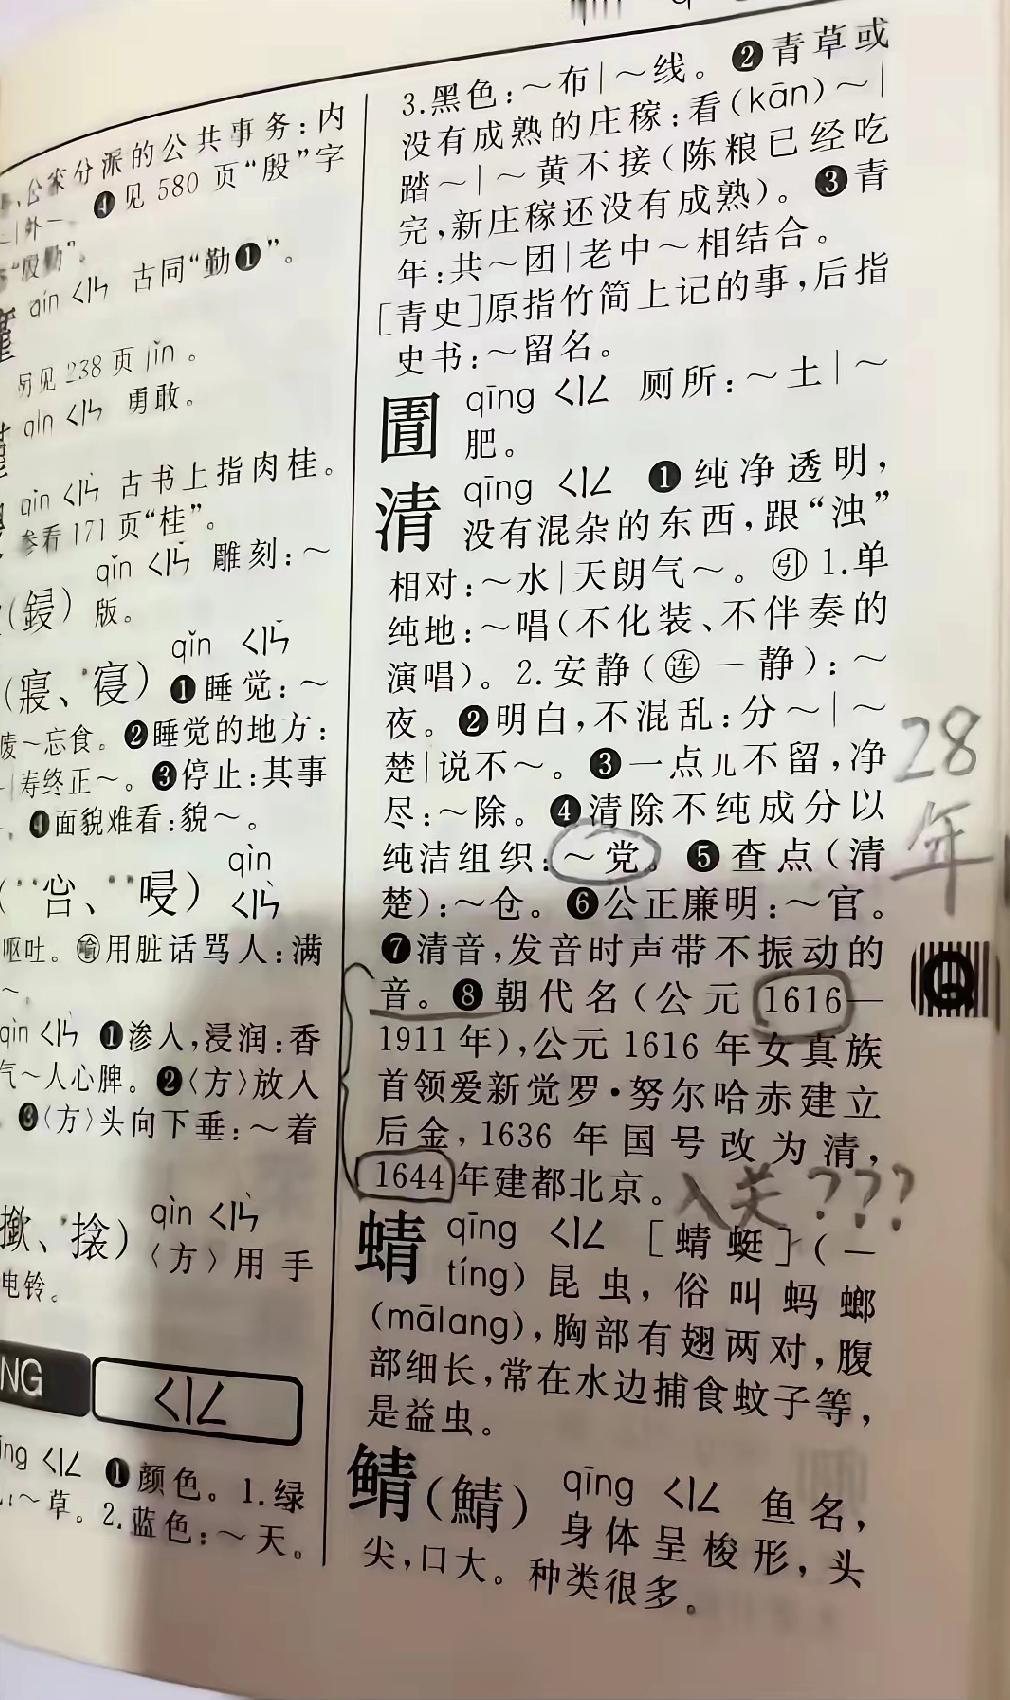 公家分派的公共事务：内
|外~。❹见580页“殷”字
“殷勤”。
qín ㄑㄧㄣˊ 古同“勤❶”。
另见238页jǐn。
qín ㄑㄧㄣˊ 勇敢。
qǐn ㄑㄧㄣˇ 古书上指肉桂。
参看171页“桂”。
qǐn ㄑㄧㄣˇ 雕刻：~
(鋟) 版。
qǐn ㄑㄧㄣˇ
(寢、*寑) ❶睡觉：~
废~忘食。❷睡觉的地方：
|寿终正~。❸停止：其事
❹面貌难看：貌~。
qìn
ㄑㄧㄣˋ
呕吐。㊁用脏话骂人：满
~。
qìn ㄑㄧㄣˋ ❶渗入，浸润：香
气~人心脾。❷〈方〉放入
❸〈方〉头向下垂：~着
qìn ㄑㄧㄣˋ
(撳、*搇) 〈方〉用手
电铃。
NG ㄑㄧㄥ
īng ㄑㄧㄥ ❶颜色。1.绿
~草。2.蓝色：~天。
3.黑色：~布|~线。❷青草或
没有成熟的庄稼：看(kān)~|
踏~|~黄不接(陈粮已经吃
完，新庄稼还没有成熟)。❸青
年：共~团|老中~相结合。
[青史]原指竹简上记的事，后指
史书：~留名。
圊 qīng ㄑㄧㄥ 厕所：~土|~
肥。
清 qīng ㄑㄧㄥ ❶纯净透明，
没有混杂的东西，跟“浊”
相对：~水|天朗气~。㊁1.单
纯地：~唱(不化装、不伴奏的
演唱)。2.安静(㊂—静)：~
夜。❷明白，不混乱：分~|~
楚|说不~。❸一点儿不留，净
尽：~除。❹清除不纯成分以
纯洁组织：~党。❺查点(清
楚)：~仓。❻公正廉明：~官。
❼清音，发音时声带不振动的
音。❽朝代名(公元1616—
1911年)，公元1616年女真族
首领爱新觉罗·努尔哈赤建立
后金，1636年国号改为清，
1644年建都北京。入关???
28
年
蜻 qīng ㄑㄧㄥ [蜻蜓](—
tíng)昆虫，俗叫蚂螂
(mālang)，胸部有翅两对，腹
部细长，常在水边捕食蚊子等，
是益虫。
鲭(鯖) qīng ㄑㄧㄥ 鱼名，
身体呈梭形，头
尖，口大。种类很多。
Q